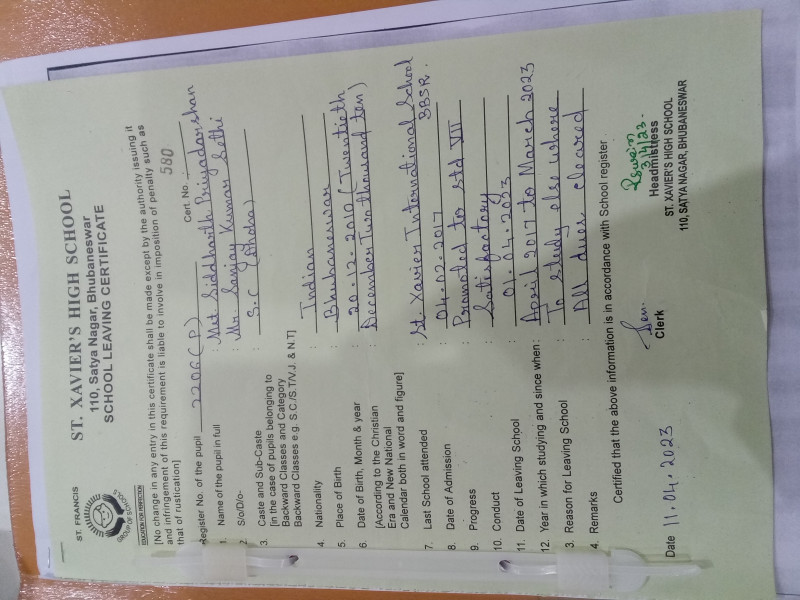 ST. FRANCIS
GROUP OF SCHOOLS
EDUCATION FOR PERFECTION
ST. XAVIER'S HIGH SCHOOL
110, Satya Nagar, Bhubaneswar
SCHOOL LEAVING CERTIFICATE
[No change in any entry in this certificate shall be made except by the authority issuing it
and infringement of this requirement is liable to involve in imposition of penalty such as
that of rustication]
Register No. of the pupil 2206(P) Cert. No. 580
1. Name of the pupil in full : Mst Siddharth Priyadarshan
2. S/o/D/o- : Mr. Sanjay Kumar Sethi
3. Caste and Sub-Caste : S.C
[in the case of pupils belonging to
Backward Classes and Category
Backward Classes e.g. S.C./S.T/V.J. & N.T]
4. Nationality : Indian
5. Place of Birth : Bhubaneswar
6. Date of Birth, Month & year : 20.12.2010 (Twentieth
[According to the Christian December Two thousand ten)
Era and New National
Calendar both in word and figure]
7. Last School attended : St. Xavier International School
BBSR.
8. Date of Admission : 04.02.2017
9. Progress : Promoted to Std VII
10. Conduct : Satisfactory
11. Date of Leaving School : 01.04.2023
12. Year in which studying and since when : April 2017 to March 2023
3. Reason for Leaving School : To study else where
4. Remarks : All dues cleared
Certified that the above information is in accordance with School register
Date 11.04.2023
Clerk
Headmistress
ST. XAVIER'S HIGH SCHOOL
110, SATYA NAGAR, BHUBANESWAR